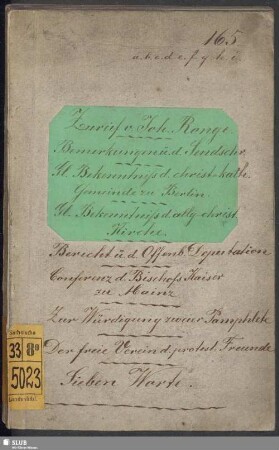 165
a. b. c. d. e. f. g. h. i.
Zuruf v. Joh. Ronge.
Bemerkungen ü. d. Sendschr.
Gl. Bekenntniß d. christ-kath.
Gemeinde zu Berlin.
Gl. Bekenntniß d. allg. christ.
Kirche.
Bericht ü. d. Offenb. Deputation
Conferenz d. Bischofs Kaiser
zu Mainz
Zur Würdigung zweier Pamphlete
Der freie Verein d. protest. Freunde
Sieben Worte.
33 8º
5023
SLUB